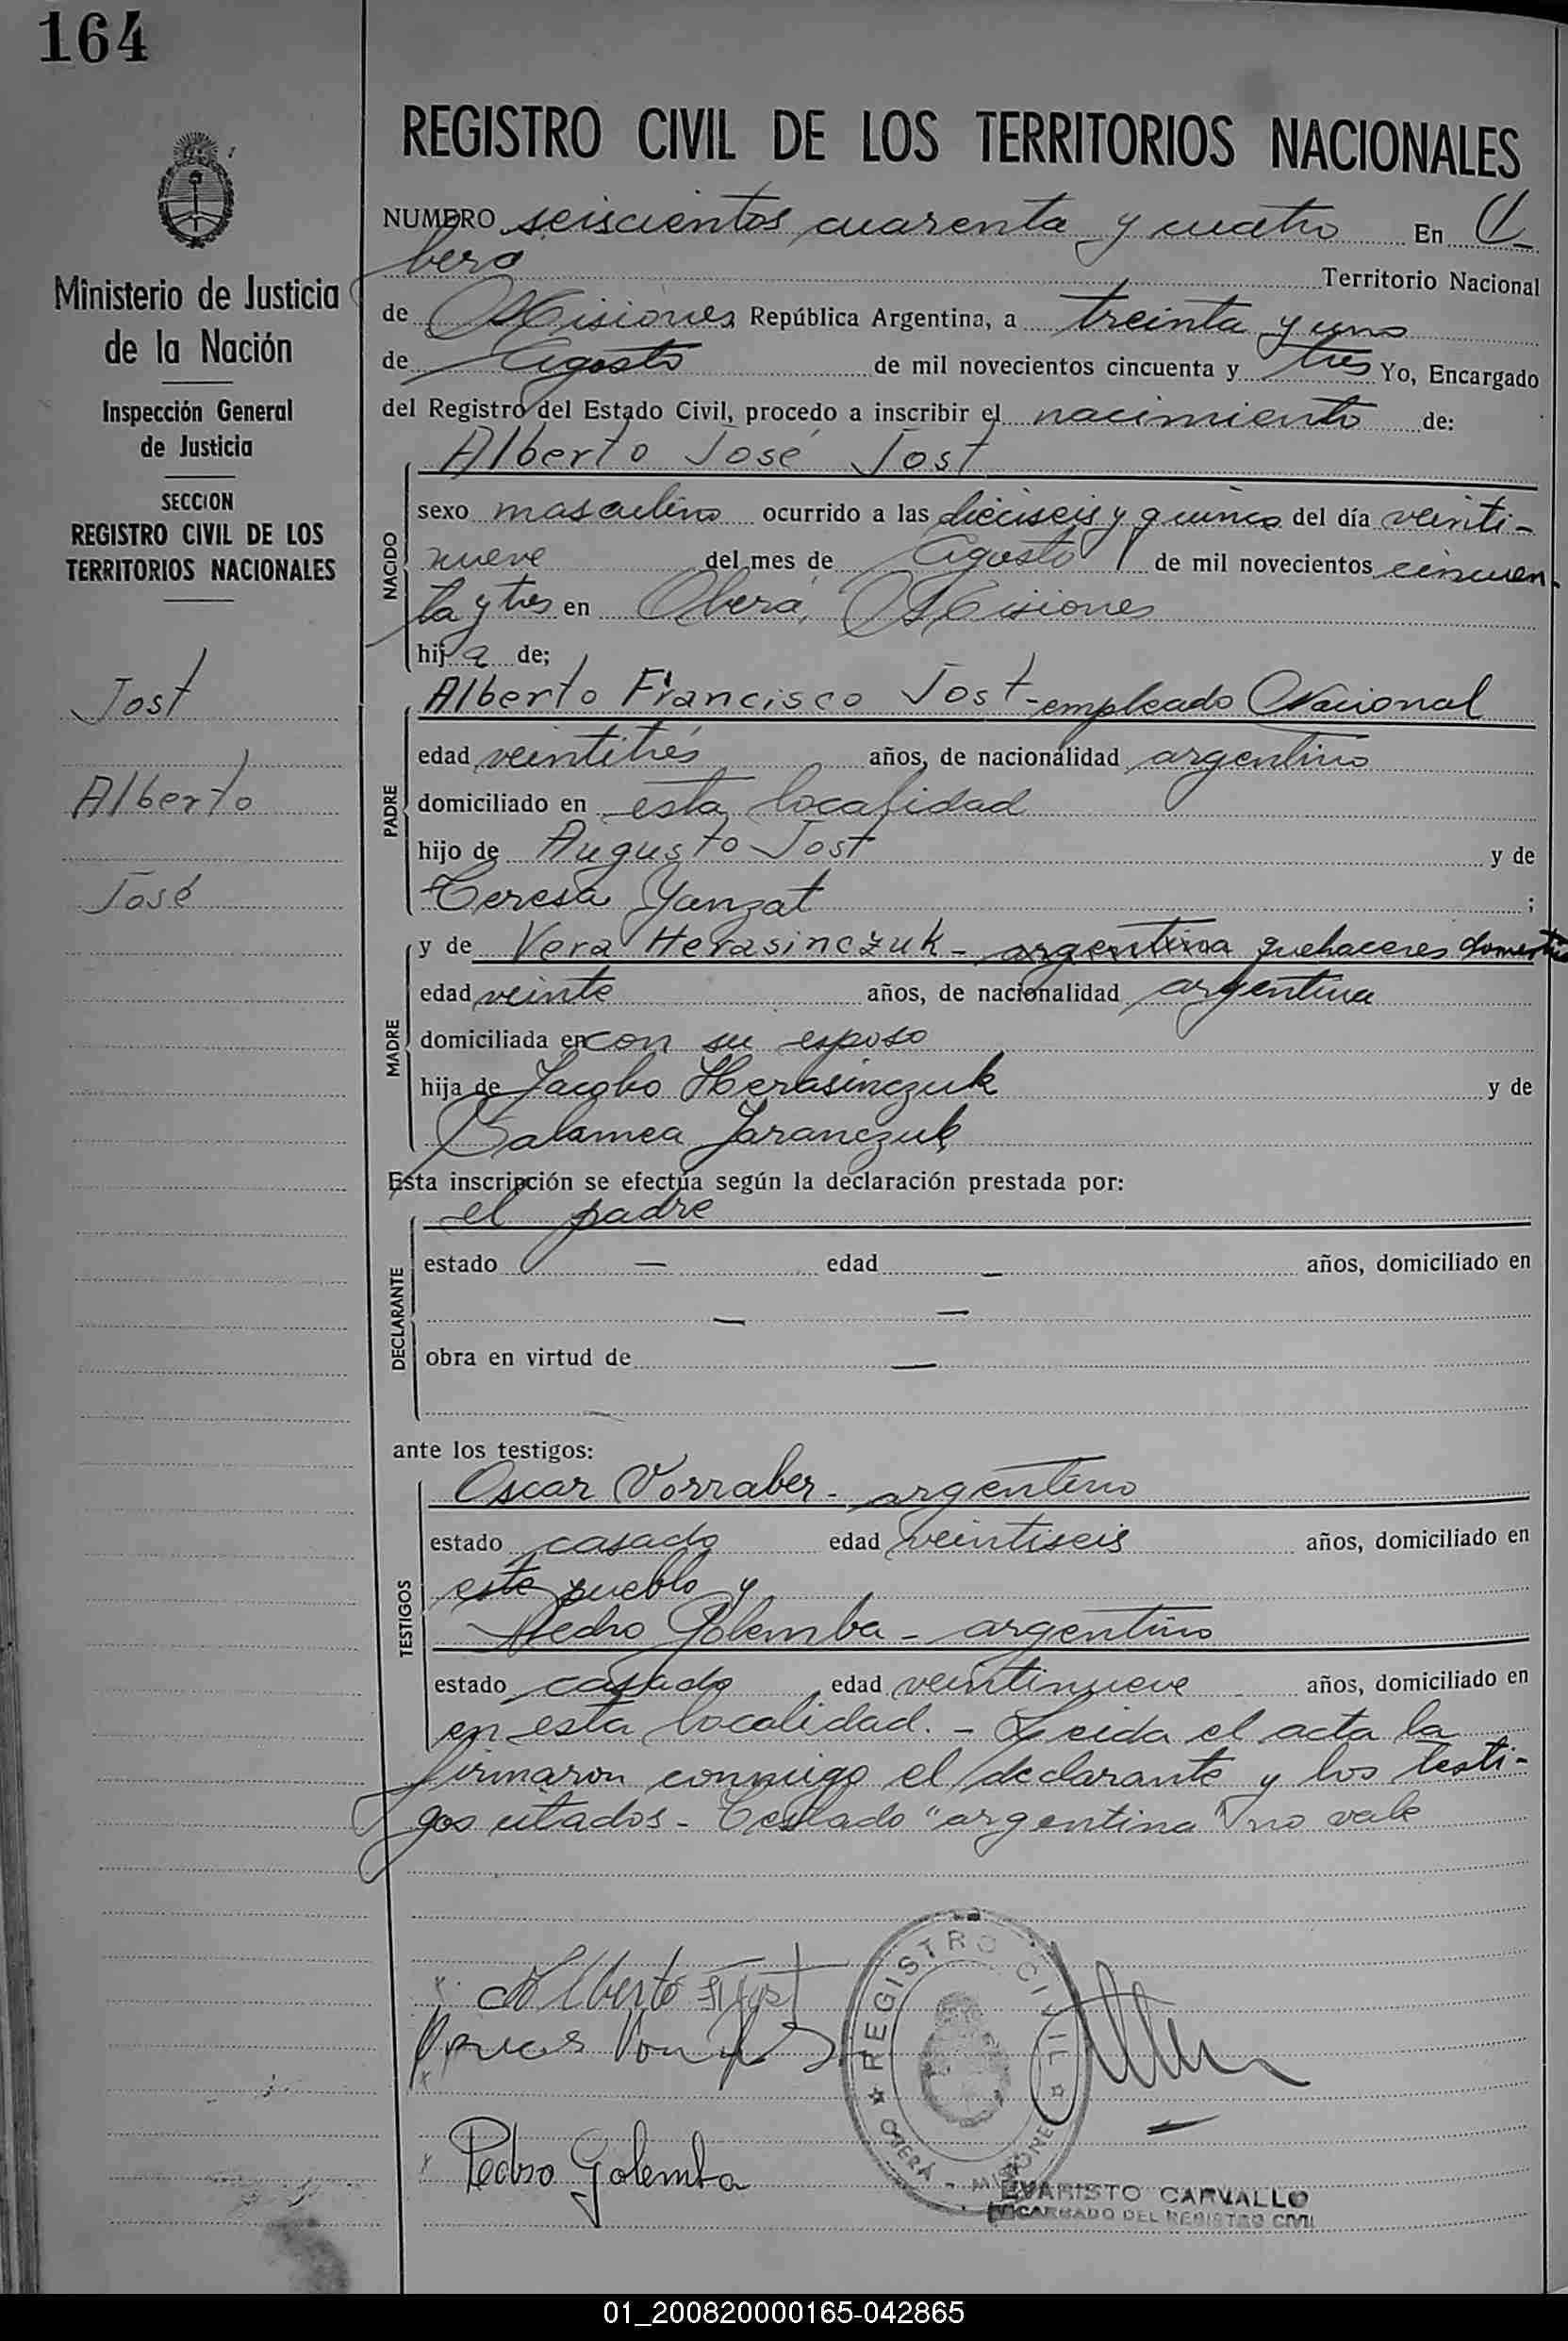 164
REGISTRO CIVIL DE LOS TERRITORIOS NACIONALES
NUMERO seiscientos cuarenta y cuatro En O-
berá Territorio Nacional
de Misiones República Argentina, a treinta y uno
de Agosto de mil novecientos cincuenta y tres Yo, Encargado
del Registro del Estado Civil, procedo a inscribir el nacimiento de:
Ministerio de Justicia
de la Nación
Inspección General
de Justicia
SECCION
REGISTRO CIVIL DE LOS
TERRITORIOS NACIONALES
Jost
Alberto
José
NACIDO
Alberto José Jost
sexo masculino ocurrido a las dieciseis y quince del día veinti-
nueve del mes de Agosto de mil novecientos cincuen-
ta y tres en Oberá, Misiones
hijo de;
PADRE
Alberto Francisco Jost - empleado Nacional
edad veintitrés años, de nacionalidad argentino
domiciliado en esta localidad
hijo de Augusto Jost y de
Teresa Yanzat ;
MADRE
y de Vera Herasinczuk - argentina quehaceres domestic
edad veinte años, de nacionalidad argentina
domiciliada en con su esposo
hija de Jacobo Herasinczuk y de
Salamea Jaranczuk
Esta inscripción se efectúa según la declaración prestada por:
DECLARANTE
el padre
estado — edad — años, domiciliado en
— —
obra en virtud de —
ante los testigos:
TESTIGOS
Oscar Vorraber - argentino
estado casado edad veintiseis años, domiciliado en
este pueblo y
Pedro Golemba - argentino
estado casado edad veintinueve años, domiciliado en
en esta localidad. - Leida el acta la
firmaron conmigo el declarante y los testi-
gos citados - Testado "argentina" no vale
Alberto F. Jost
REGISTRO CIVIL
OBERÁ - MISIONES
Pedro Golemba
EVARISTO CARVALLO
ENCARGADO DEL REGISTRO CIVIL
01_200820000165-042865